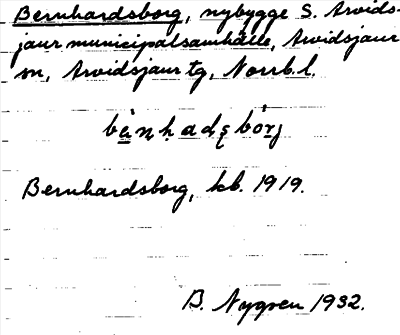 Bernhardsborg, nybygge S. Arvids-
jaur municipalsamhälle, Arvidsjaur
sn, Arvidsjaur tg, Norrb. l.
Bernhardsborg, kb. 1919.
B. Nygren 1932.